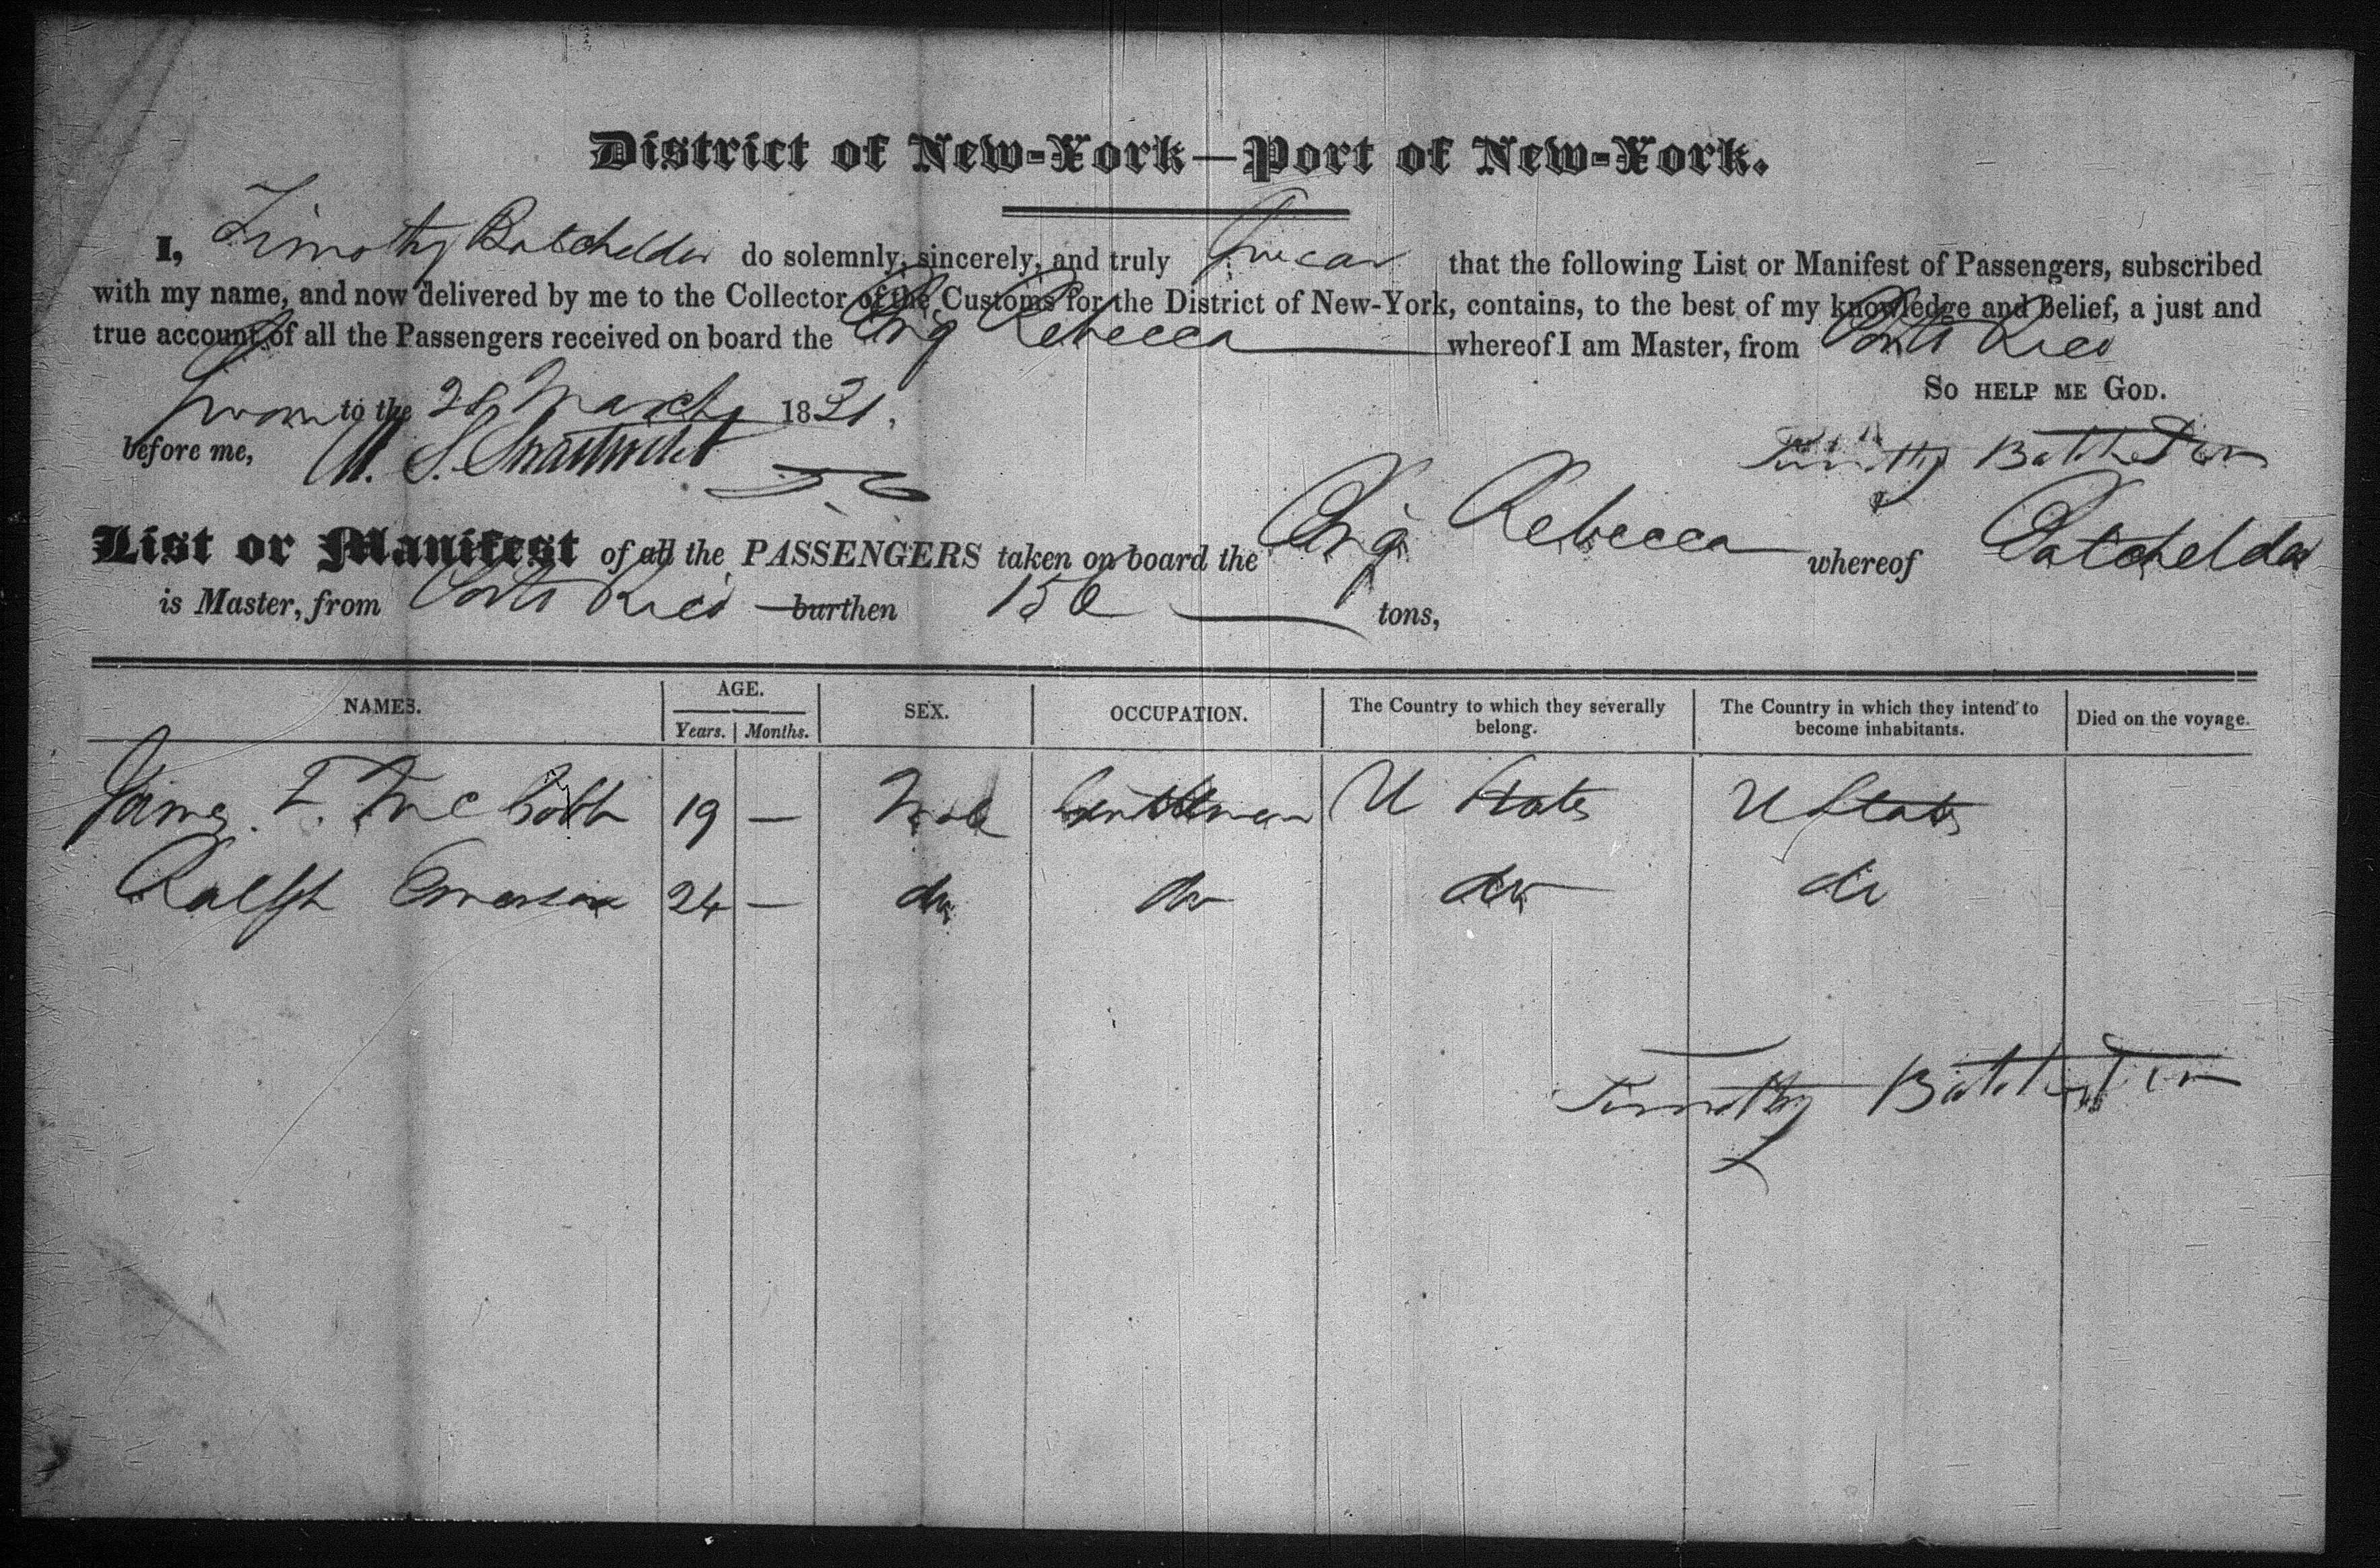 District of New-York—Port of New-York.
I, Timothy Batchelder do solemnly, sincerely, and truly Swear that the following List or Manifest of Passengers, subscribed
with my name, and now delivered by me to the Collector of the Customs for the District of New-York, contains, to the best of my knowledge and belief, a just and
true account of all the Passengers received on board the Brig Rebecca whereof I am Master, from Porto Rico
So help me God.
Sworn to the March 18
before me,
Timothy Batchelder
List or Manifest of all the PASSENGERS taken on board the Brig Rebecca whereof Batchelder
is Master, from Porto Rico burthen 156 tons,
NAMES. AGE. SEX. OCCUPATION. The Country to which they severally belong. The Country in which they intend to become inhabitants. Died on the voyage.
Years. Months.
James T. McCobb 19 — Male Gentleman U States U States
Ralph Emerson 24 — do do do do
Timothy Batchelder